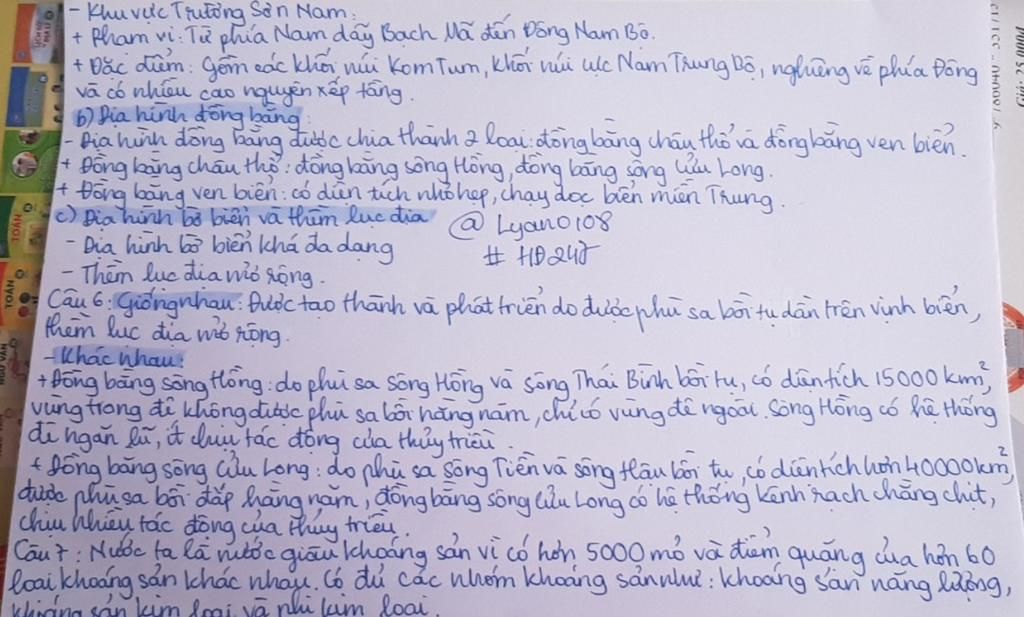 - Khu vực Trường Sơn Nam:
+ Phạm vi: Từ phía Nam dãy Bạch Mã đến Đông Nam Bộ.
+ Đặc điểm: Gồm các khối núi Kom Tum, khối núi cực Nam Trung Bộ, nghiêng về phía Đông
và có nhiều cao nguyên xếp tầng.
b) Địa hình đồng bằng:
- Địa hình đồng bằng được chia thành 2 loại: đồng bằng châu thổ và đồng bằng ven biển.
+ Đồng bằng châu thổ: đồng bằng sông Hồng, đồng bằng sông Cửu Long.
+ Đồng bằng ven biển: có diện tích nhỏ hẹp, chạy dọc biển miền Trung.
c) Địa hình bờ biển và thềm lục địa @ Lyano108
- Địa hình bờ biển khá đa dạng # HĐ247
- Thềm lục địa mở rộng.
Câu 6: Giống nhau: Được tạo thành và phát triển do được phù sa bồi tụ dần trên vịnh biển,
thềm lục địa mở rộng.
- Khác nhau:
+ Đồng bằng sông Hồng: do phù sa sông Hồng và sông Thái Bình bồi tụ, có diện tích 15000 km²,
vùng trong đê không được phù sa bồi hằng năm, chỉ có vùng đê ngoài. Sông Hồng có hệ thống
đê ngăn lũ, ít chịu tác động của thủy triều.
+ Đồng bằng sông Cửu Long: do phù sa sông Tiền và sông Hậu bồi tụ, có diện tích hơn 40000km²,
được phù sa bồi đắp hằng năm, đồng bằng sông Cửu Long có hệ thống kênh rạch chằng chịt,
chịu nhiều tác động của thủy triều.
Câu 7: Nước ta là nước giàu khoáng sản vì có hơn 5000 mỏ và điểm quặng của hơn 60
loại khoáng sản khác nhau. Có đủ các nhóm khoáng sản như: khoáng sản năng lượng,
khoáng sản kim loại và phi kim loại.
TOÁN
TOÁN